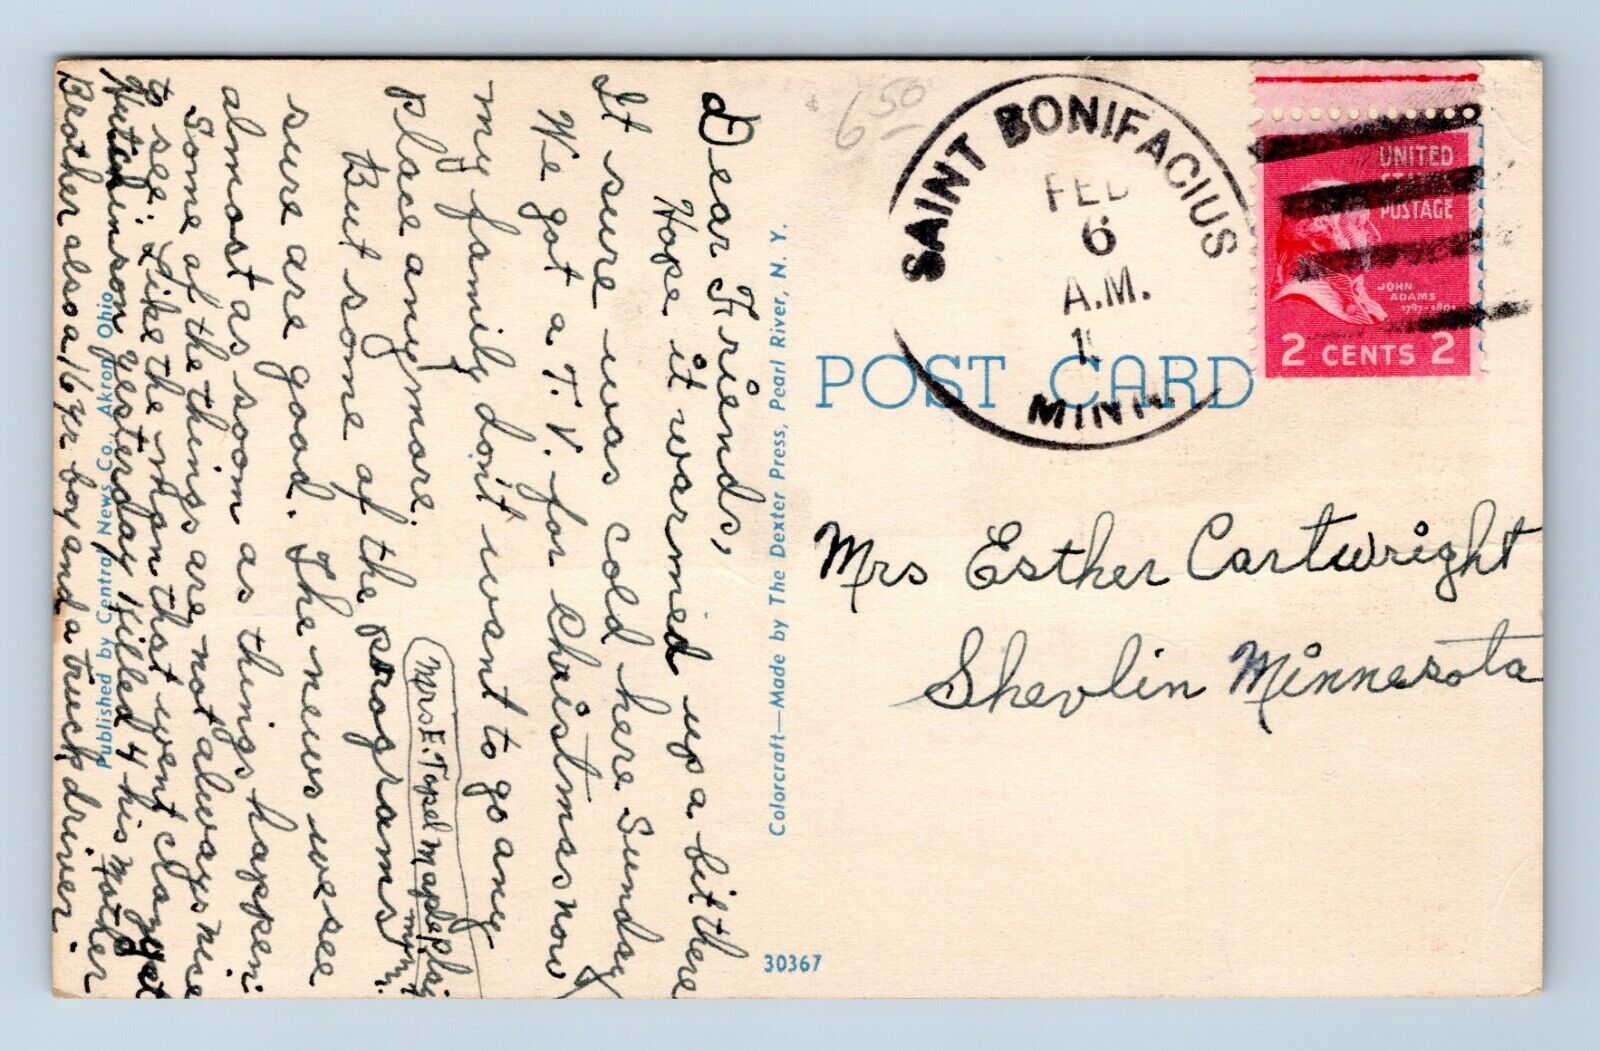 Dear Friends,
Hope it warmed up a bit there
It sure was cold here Sunday
We got a T.V. for Christmas now
my family don't want to go any
place anymore.
But some of the programs
sure are good. The news we see
almost as soom as things happen.
Some of the things are not always nice
to see. Like the man that went
Hutchinson yesterday killed 4 his Mother
Brother also a 16 yr boy and a truck driver.
Mrs E. Mapleplain
minn.
Published by Central News Co., Akron, Ohio
Colorcraft—Made by The Dexter Press, Pearl River, N. Y.
30367
$ 6 50
SAINT BONIFACIUS
FEB
6
A.M.
MINN.
UNITED
STATES
POSTAGE
JOHN
ADAMS
1797-1801
2 CENTS 2
POST CARD
Mrs Esther Cartwright
Shevlin Minnesota